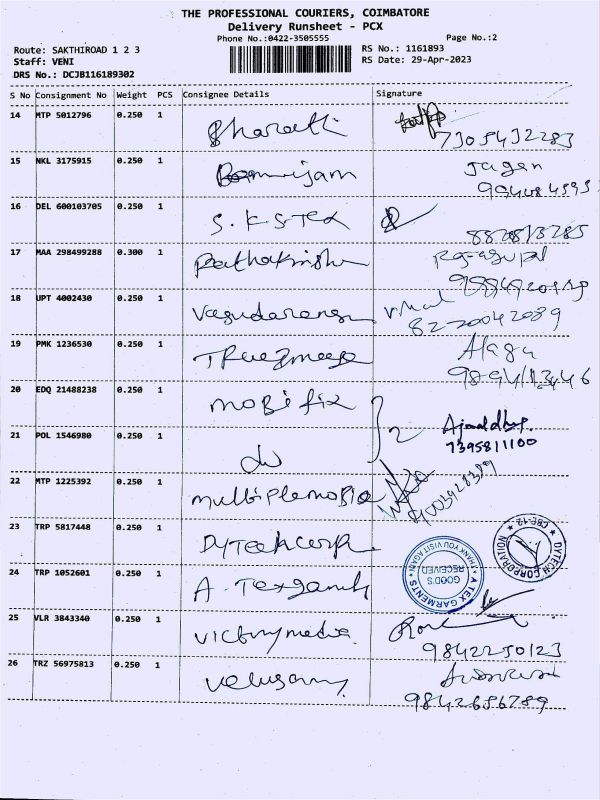 THE PROFESSIONAL COURIERS, COIMBATORE
Delivery Runsheet - PCX
Phone No.:0422-3505555
Page No.:2
Route: SAKTHIROAD 1 2 3
RS No.: 1161893
Staff: VENI
RS Date: 29-Apr-2023
DRS No.: DCJB116189302
S No Consignment No Weight PCS Consignee Details Signature
14 MTP 5012796 0.250 1 Bharathi
7305432283
15 NKL 3175915 0.250 1 Jagan
16 DEL 600103705 0.250 1 S.K.S-Tex
17 MAA 298499288 0.300 1
18 UPT 4002430 0.250 1
8220042089
19 PMK 1236530 0.250 1
20 EDQ 21488238 0.250 1 Mobifix
2
7395811100
21 POL 1546980 0.250 1 do
22 MTP 1225392 0.250 1 Multiplemobile
23 TRP 5817448 0.250 1 Dytechcorp
DYTECH CORPORATION
CBE-12
24 TRP 1052601 0.250 1 A. Texgarments
A TEX GARMENTS
GOOD'S RECEIVED
THANK YOU VISIT AGAIN
25 VLR 3843340 0.250 1 Victorymedia
9842250123
26 TRZ 56975813 0.250 1 Velusamy
9842686789